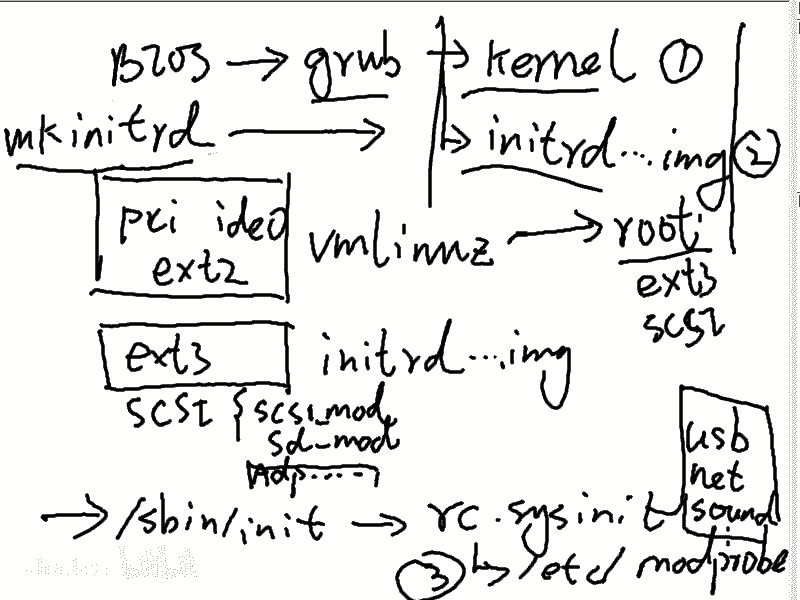 BIOS → grub → kernel ①
mkinitrd → → initrd...img ②
pci ide0
ext2
vmlinuz → root:
ext3
scsi
ext3 initrd...img
SCSI { scsi_mod
sd_mod
usb
net
sound
→ /sbin/init → rc.sysinit
③ ↳ /etc/ modprobe